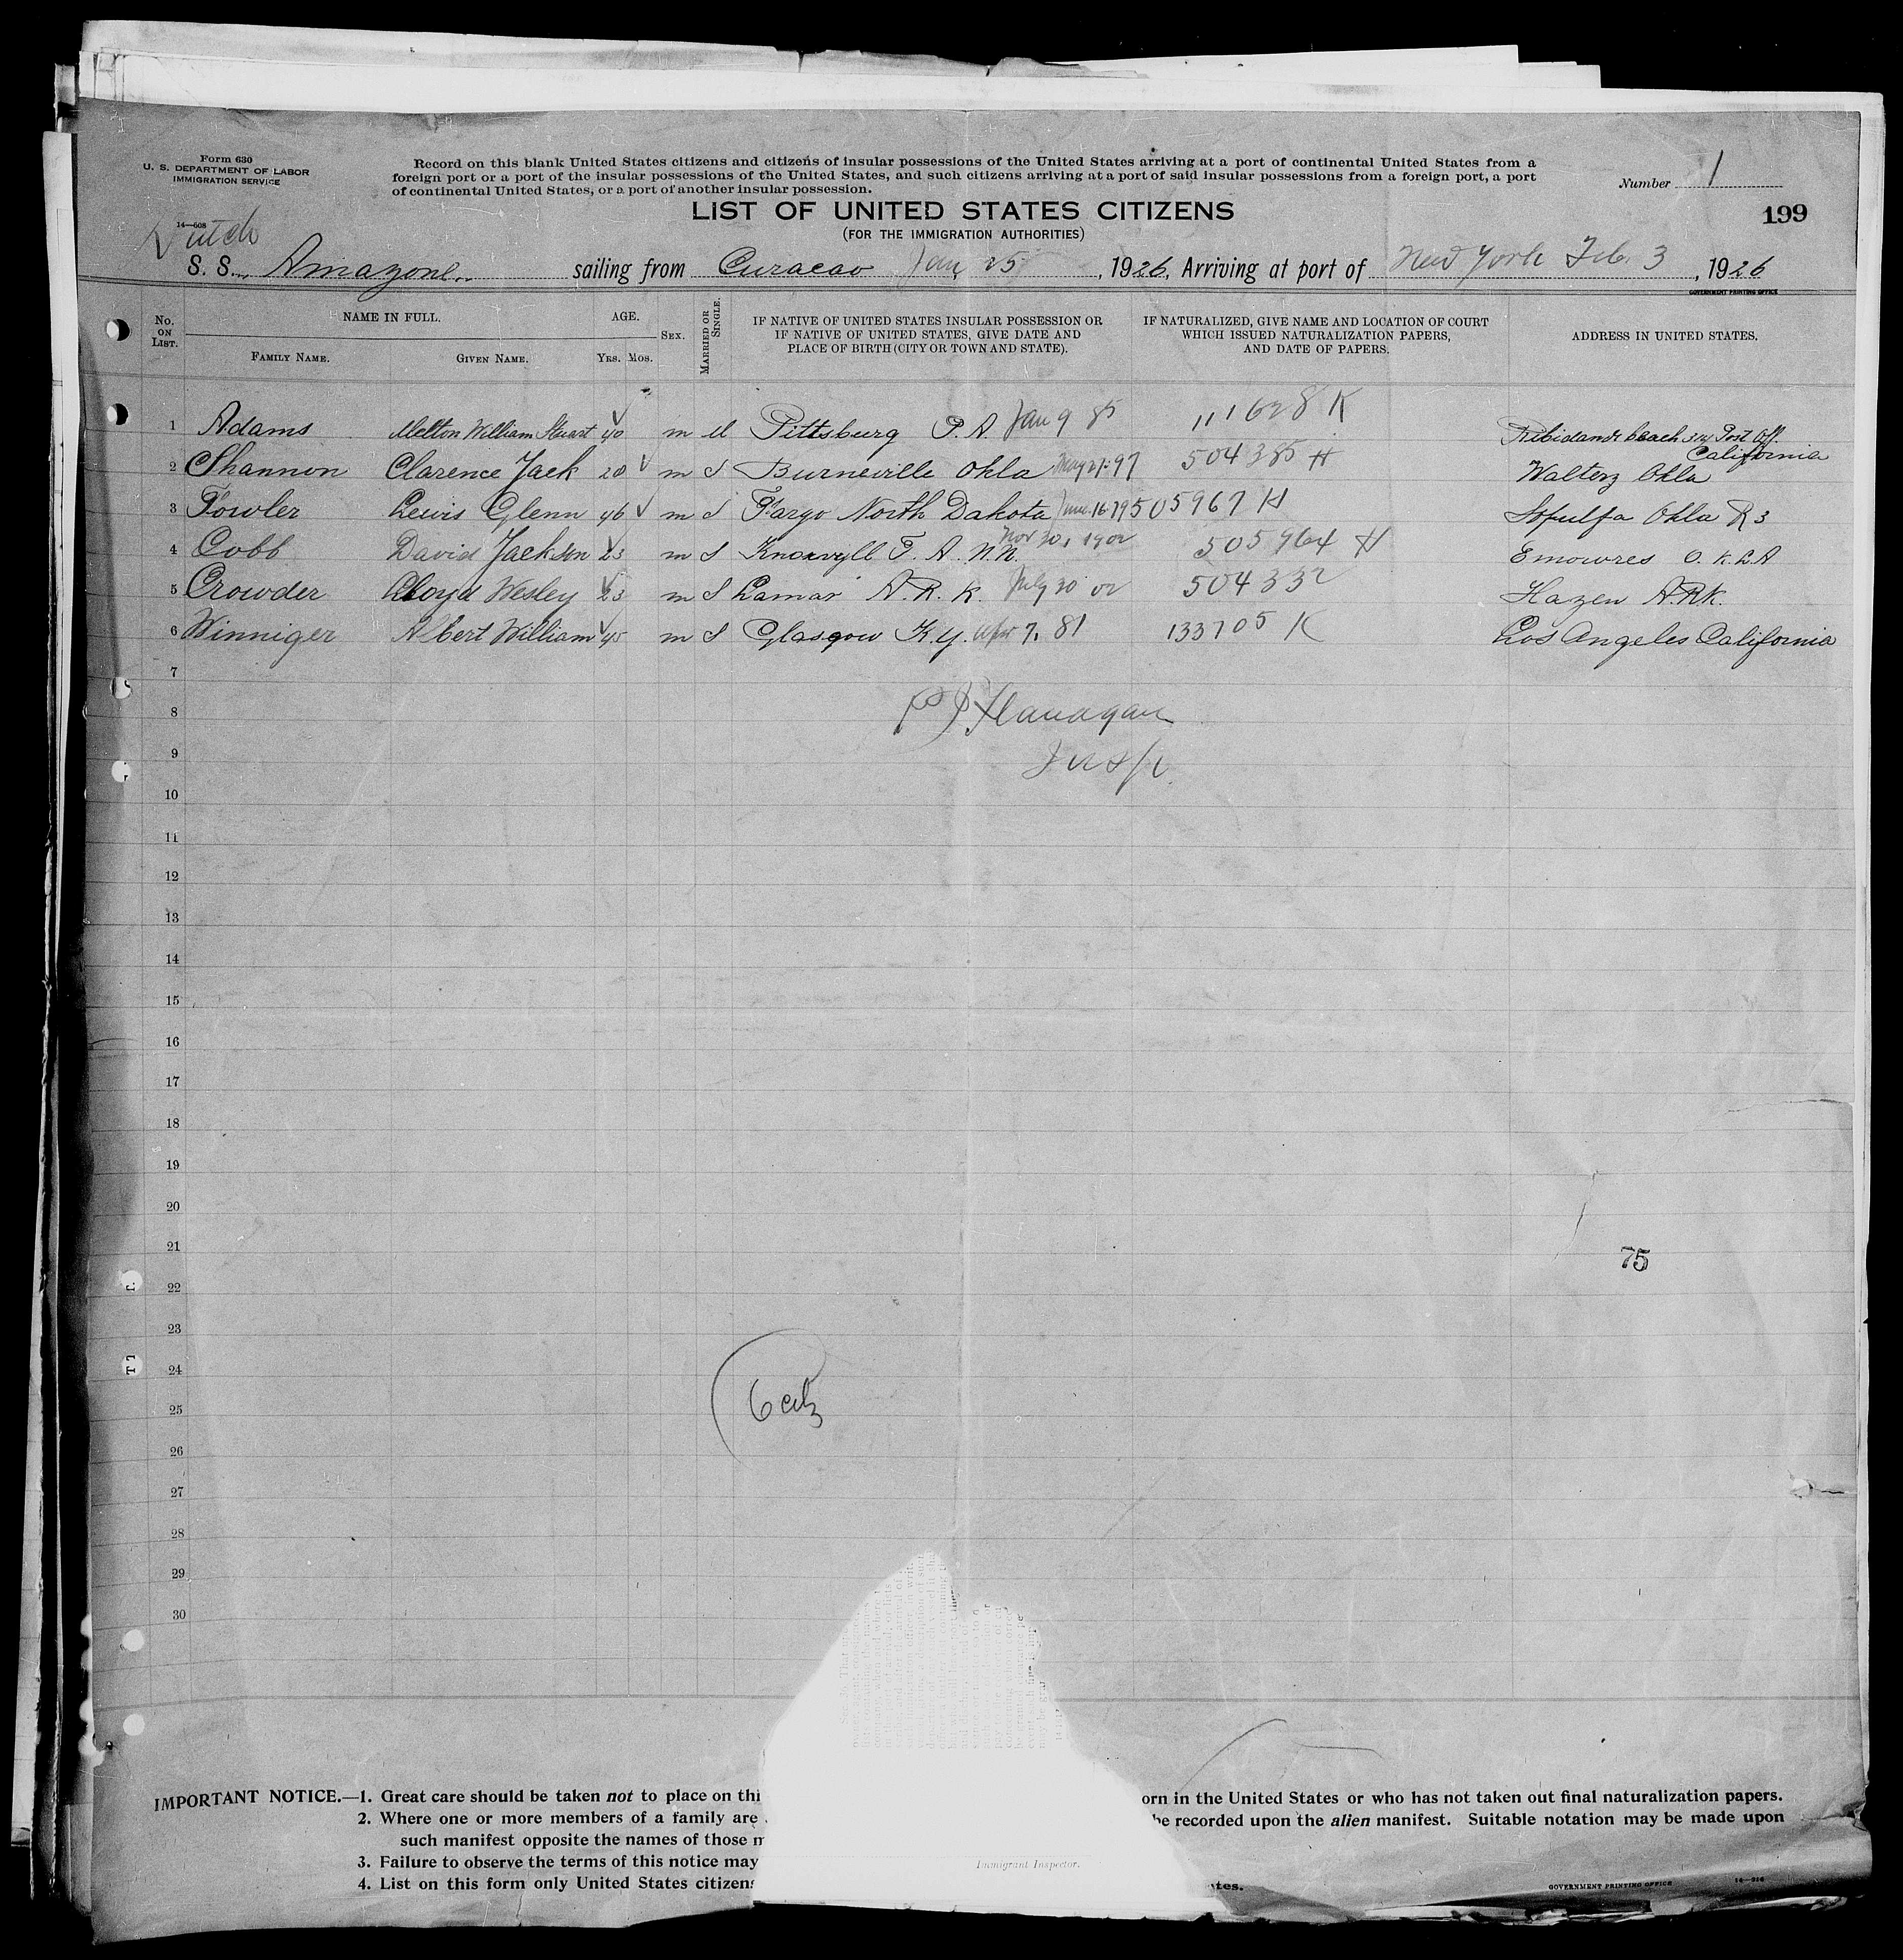 Form 630
U. S. DEPARTMENT OF LABOR
IMMIGRATION SERVICE
14—608
Record on this blank United States citizens and citizens of insular possessions of the United States arriving at a port of continental United States from a
foreign port or a port of the insular possessions of the United States, and such citizens arriving at a port of said insular possessions from a foreign port, a port
of continental United States, or a port of another insular possession.
Number 1
199
LIST OF UNITED STATES CITIZENS
(FOR THE IMMIGRATION AUTHORITIES)
Dutch
S. S. Amazone sailing from Curacao Jan 25, 1926, Arriving at port of New York Feb. 3, 1926
GOVERNMENT PRINTING OFFICE
No. ON LIST. NAME IN FULL. FAMILY NAME. GIVEN NAME. AGE. YRS. MOS. SEX. MARRIED OR SINGLE. IF NATIVE OF UNITED STATES INSULAR POSSESSION OR IF NATIVE OF UNITED STATES, GIVE DATE AND PLACE OF BIRTH (CITY OR TOWN AND STATE). IF NATURALIZED, GIVE NAME AND LOCATION OF COURT WHICH ISSUED NATURALIZATION PAPERS, AND DATE OF PAPERS. ADDRESS IN UNITED STATES.
1 Adams Melton William Stuart 40 m M Pittsburg P.A. Jan 9 85 111628 K beach Post Off. California
2 Shannon Clarence Jack 28 m S Burneville Okla May 27. 97 504385 H Walters Okla
3 Fowler Lewis Glenn 46 m S Fargo North Dakota June 16 79 505967 H Okla R 3
4 Cobb David Jackson 23 m S Knoxvyll T. A. N.N. Nov 30, 1902 505964 H O. K. L. A
5 Crowder Lloyd Wesley 23 m S Lamar A. R. K. July 30 02 504332 Hazen A.RK.
6 Winniger Albert William 45 m S Glasgow K.y. Apr 7, 81 133705 K Los Angeles California
7
8 Flanagan
9 Insp.
10
11
12
13
14
15
16
17
18
19
20
21 75
22
23
24
25 6 citz
26
27
28
29
30
IMPORTANT NOTICE.—1. Great care should be taken not to place on thi orn in the United States or who has not taken out final naturalization papers.
2. Where one or more members of a family are be recorded upon the alien manifest. Suitable notation may be made upon
such manifest opposite the names of those m
3. Failure to observe the terms of this notice may Immigrant Inspector.
4. List on this form only United States citizens tes.
GOVERNMENT PRINTING OFFICE